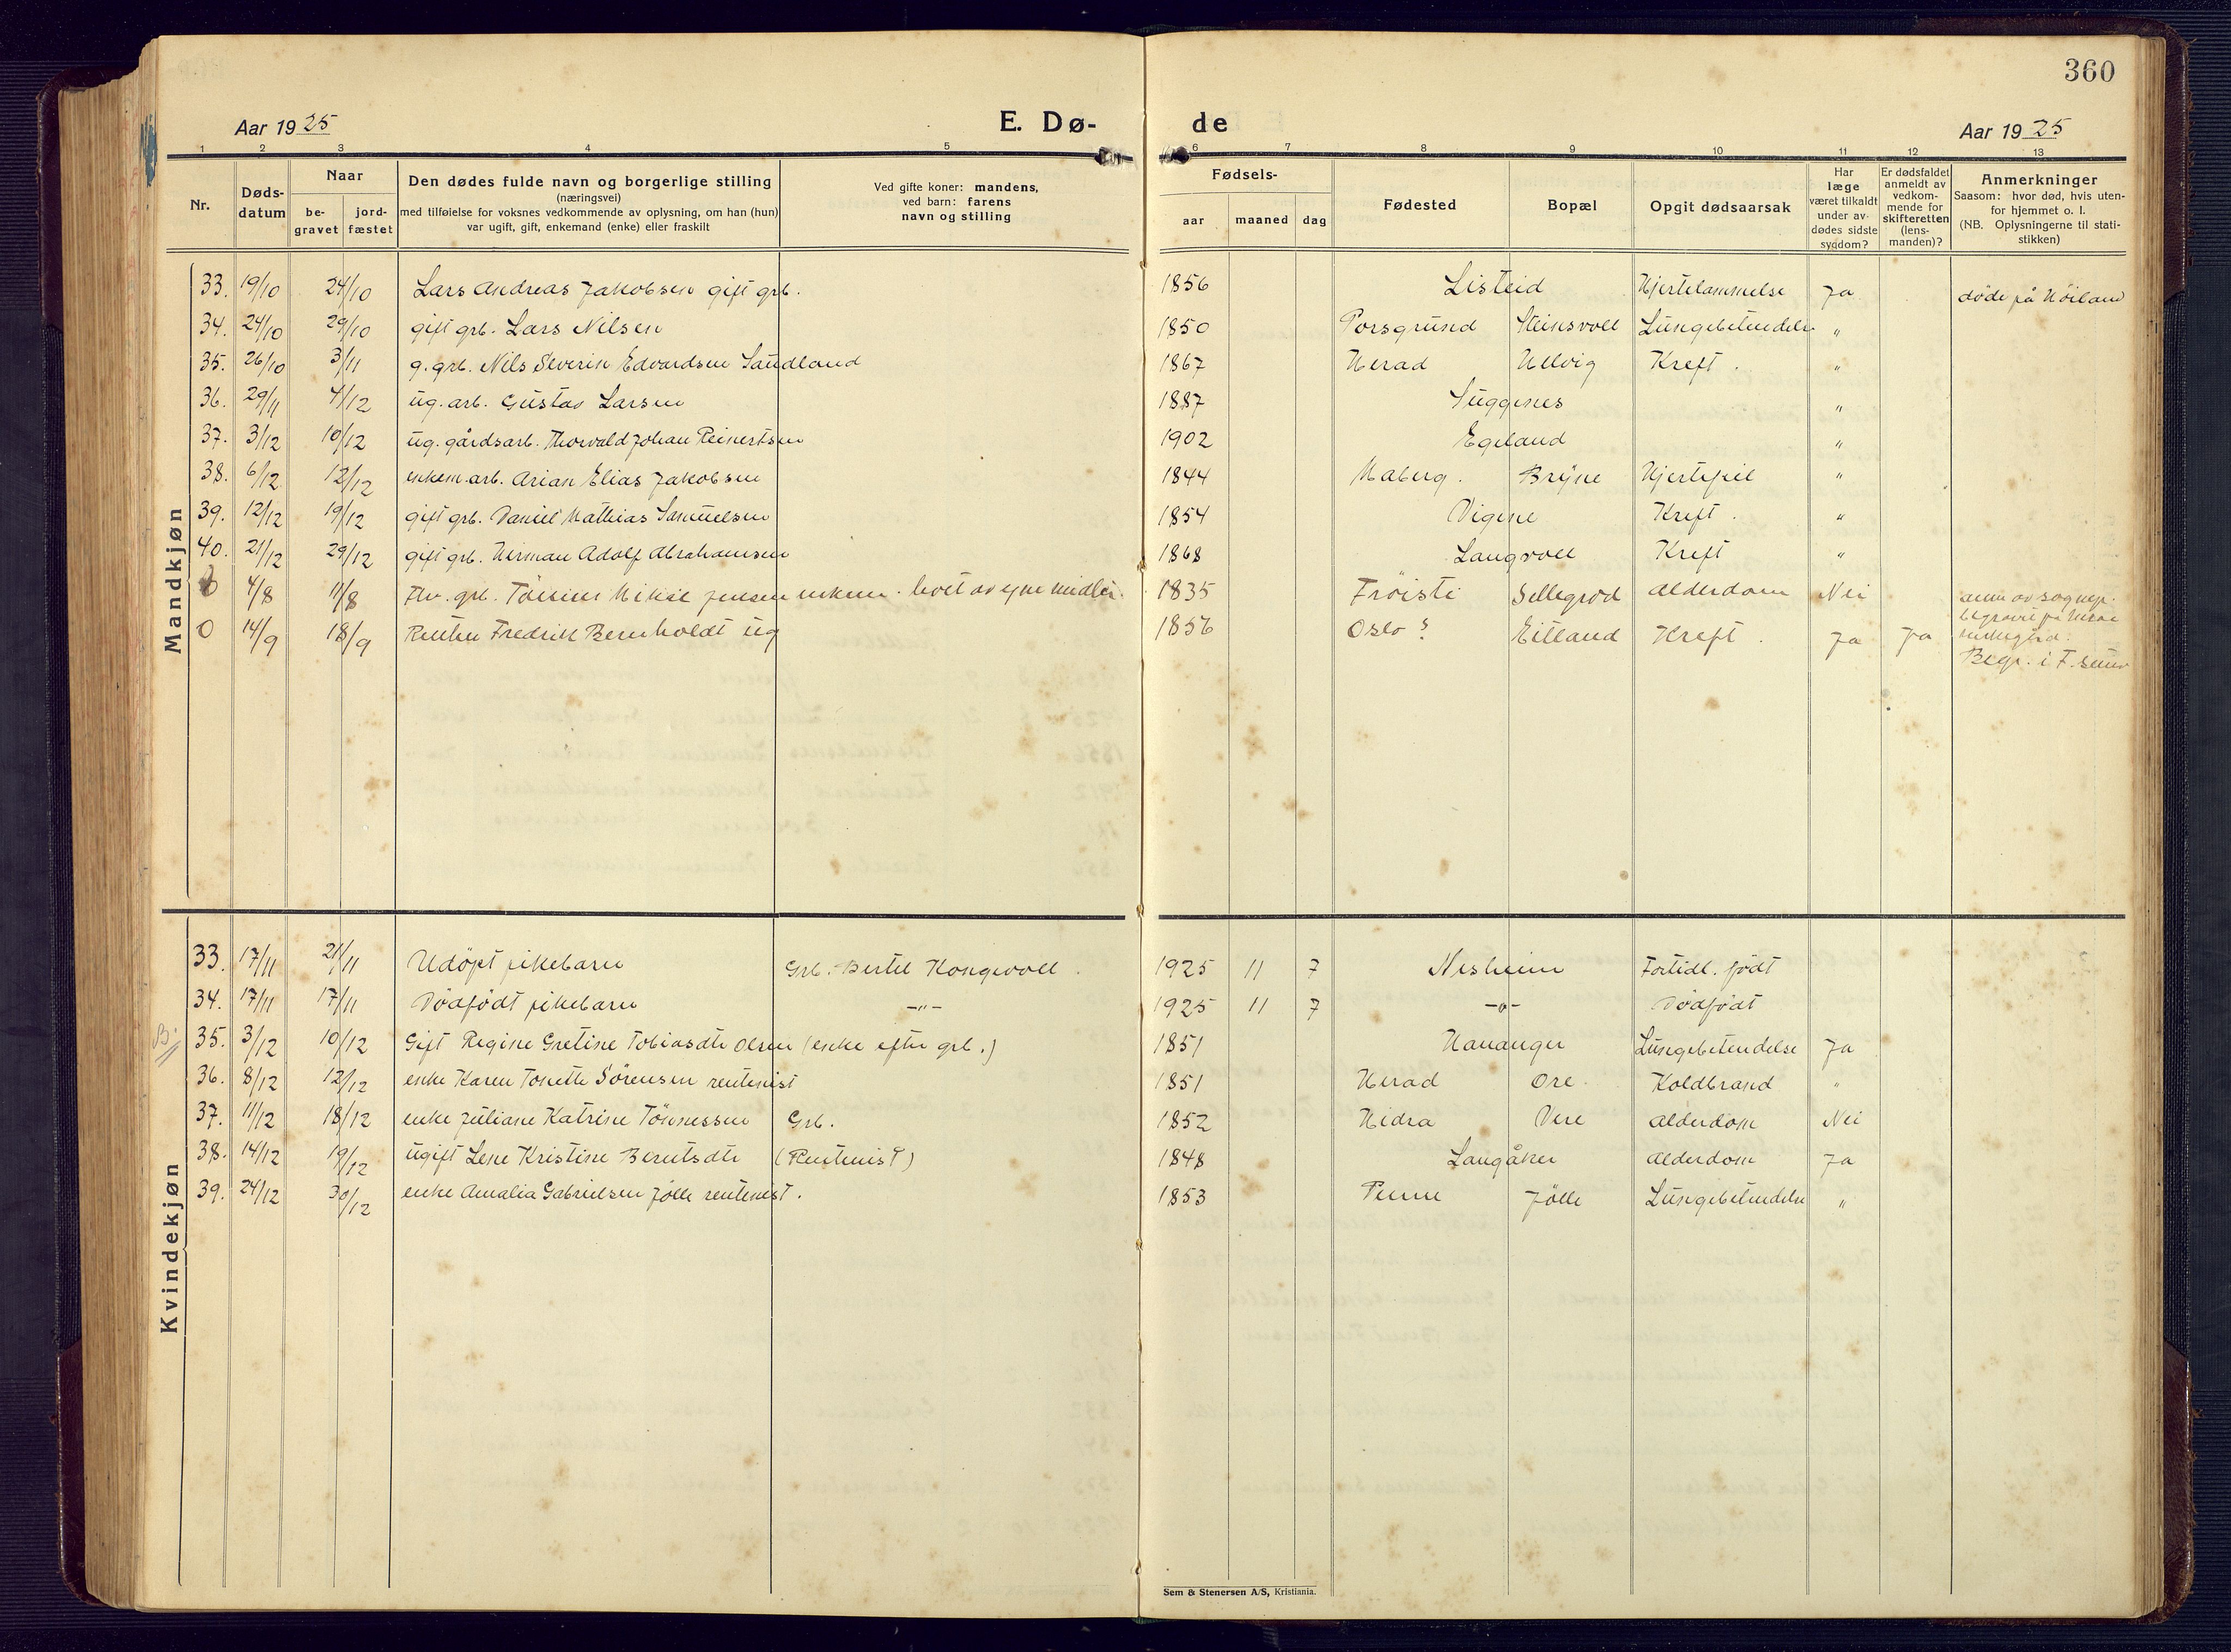 360
Aar 1925 E. Dø- de Aar 1925
1 2 3 4 5 6 7 8 9 10 11 12 13
Nr.
Døds-
datum
Naar
be-
gravet
jord-
fæstet
Den dødes fulde navn og borgerlige stilling
(næringsvei)
med tilføielse for voksnes vedkommende av oplysning, om han (hun)
var ugift, gift, enkemand (enke) eller fraskilt
Ved gifte koner: mandens,
ved barn: farens
navn og stilling
Fødsels-
aar maaned dag
Fødested
Bopæl
Opgit dødsaarsak
Har
læge
været tilkaldt
under av-
dødes sidste
sygdom?
Er dødsfaldet
anmeldt av
vedkom-
mende for
skifteretten
(lens-
manden)?
Anmerkninger
Saasom: hvor død, hvis uten-
for hjemmet o. l.
(NB. Oplysningerne til stati-
stikken)
Mandkjøn
33. 19/10 24/10 Lars Andreas Jakobsen gift grb. 1856 Listeid Hjertelammelse Ja døde på Höiland
34. 24/10 29/10 gift grb. Lars Nilsen 1850 Porsgrund Steinsvoll Lungebetendelse "
35. 26/10 3/11 g. grb. Nils Severin Edvardsen Sandland 1867 Herad Ullvig Kreft. "
36. 29/11 4/12 ug. arb. Gustav Larsen 1887 Suggenes "
37. 3/12 10/12 ug. gårdsarb. Thorvald Johan Reinertsen 1902 Egeland "
38. 6/12 12/12 enkem. arb. Arian Elias Jakobsen 1844 Maberg. Bryne Hjertefeil "
39. 12/12 19/12 gift grb. Daniel Mathias Samuelsen 1854 Vigene Kreft. "
40. 21/12 29/12 gift grb. Herman Adolf Abrahamsen 1868 Langvoll Kreft "
0 4/8 11/8 Fhv. grb. Jensen enkem. levet av egne midler. 1835 Fröisti Sellegrod Alderdom Nei
0 14/9 18/9 Fredrik Bernholdt ug 1856 Oslo? Eitland Kreft. Ja Ja
Begr. i F.
Kvindekjøn
33. 17/11 21/11 Udöpt pikebarn Grb. Bertel Kongevoll. 1925 11 7 Nesheim Fortidl. födt
34. 17/11 17/11 Dödfödt pikebarn -"- 1925 11 7 -"- Dödfödt
B. 35. 3/12 10/12 Gift Regine Gretine Tobiasdtr Olsen (enke efter grb.) 1851 Hananger Lungebetendelse Ja
36. 8/12 12/12 enke Karen Tonette Sörensen rentenist 1851 Herad Ore. Koldbrand "
37. 11/12 18/12 enke Juliane Katrine Tönnessen Grb. 1852 Hidra Vere Alderdom Nei
38. 14/12 19/12 ugift Lene Kristine Berntsdtr (Rentenist) 1848 Langåker Alderdom Ja
39. 24/12 30/12 enke Amalia Gabrielsen Jölle rentenist. 1853 Penne Jölle Lungebetendelse "
Sem & Stenersen A/S, Kristiania.